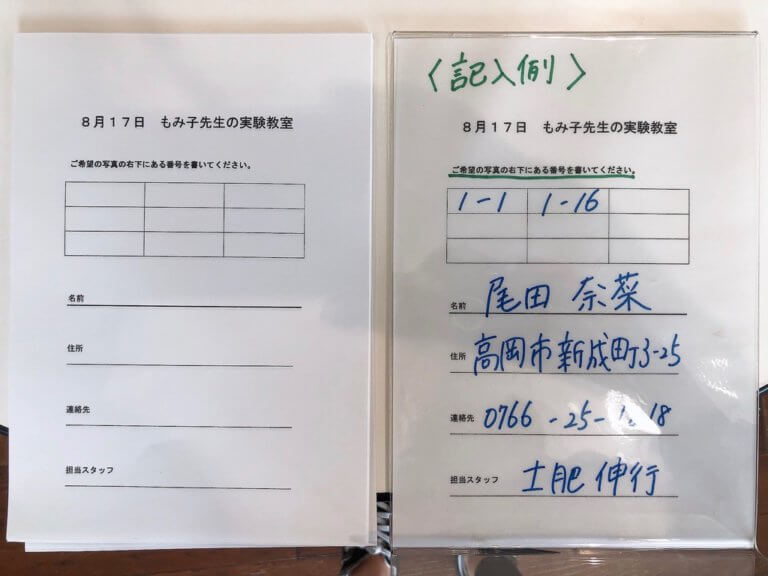 8月17日 もみ子先生の実験教室
ご希望の写真の右下にある番号を書いてください。
名前
住所
連絡先
担当スタッフ
〈記入例〉
8月17日 もみ子先生の実験教室
ご希望の写真の右下にある番号を書いてください。
1-1 1-16
名前 尾田 奈菜
住所 高岡市新成町3-25
連絡先 0766-25-
担当スタッフ 土肥 伸行